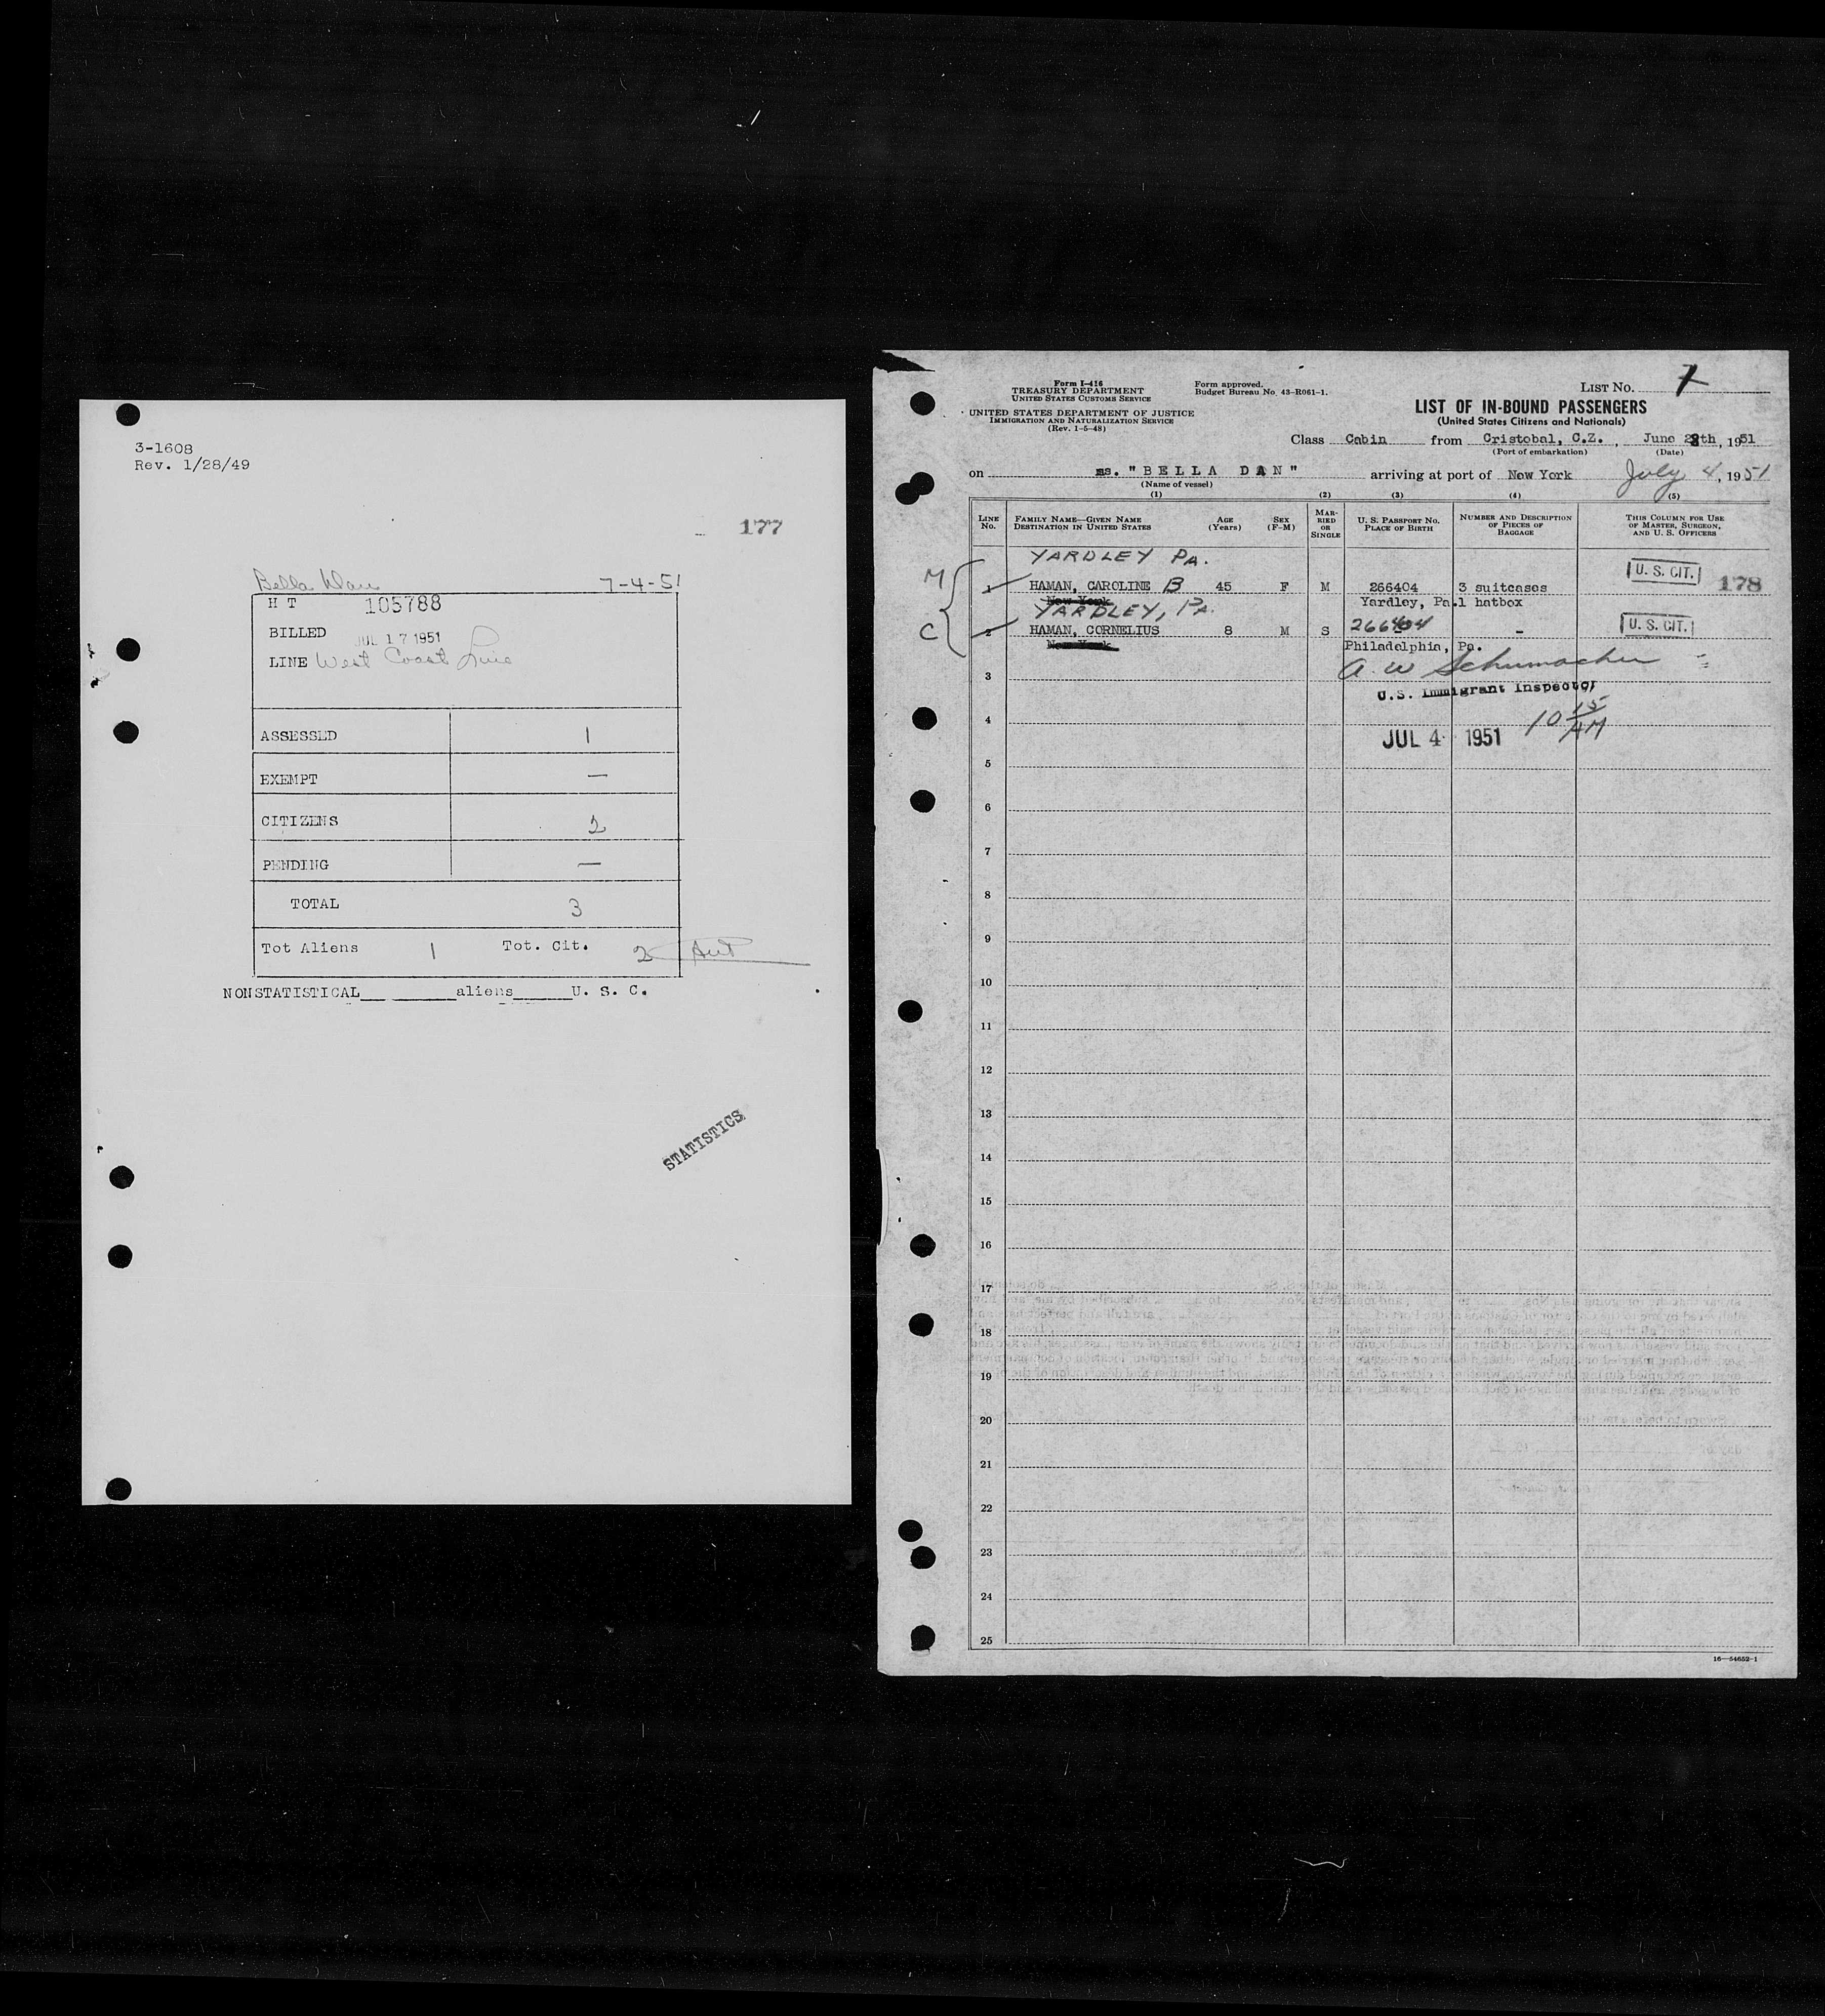 3-1608
Rev. 1/28/49
177
Bella Dan 7-4-51
H T 105788
BILLED JUL 17 1951
LINE West Coast Line
ASSESSED 1
EXEMPT —
CITIZENS 2
PENDING —
TOTAL 3
Tot Aliens 1 Tot. Cit. 2
NONSTATISTICAL aliens U. S. C.
STATISTICS
Form I-416
TREASURY DEPARTMENT
UNITED STATES CUSTOMS SERVICE
UNITED STATES DEPARTMENT OF JUSTICE
IMMIGRATION AND NATURALIZATION SERVICE
(Rev. 1-5-48)
Form approved.
Budget Bureau No. 43-R061-1.
LIST NO. 1
LIST OF IN-BOUND PASSENGERS
(United States Citizens and Nationals)
Class Cabin from Cristobal, C.Z., June 28th, 1951
(Port of embarkation) (Date)
on ms. "BELLA DAN" arriving at port of New York July 4, 1951
(Name of vessel)
(1) (2) (3) (4) (5)
LINE No. FAMILY NAME—GIVEN NAME DESTINATION IN UNITED STATES AGE (Years) SEX (F-M) MARRIED OR SINGLE U. S. PASSPORT NO. PLACE OF BIRTH NUMBER AND DESCRIPTION OF PIECES OF BAGGAGE THIS COLUMN FOR USE OF MASTER, SURGEON, AND U. S. OFFICERS
YARDLEY PA.
M 1 HAMAN, CAROLINE B 45 F M 266404 3 suitcases U. S. CIT. 178
New York Yardley, Pa. 1 hatbox
YARDLEY, PA.
C 2 HAMAN, CORNELIUS 8 M S 266404 - U. S. CIT.
New York Philadelphia, Pa.
A. W Schumacher
3
U.S. Immigrant Inspector
4
10 15 AM
JUL 4 1951
5
6
7
8
9
10
11
12
13
14
15
16
17
18
19
20
21
22
23
24
25
16—54652-1